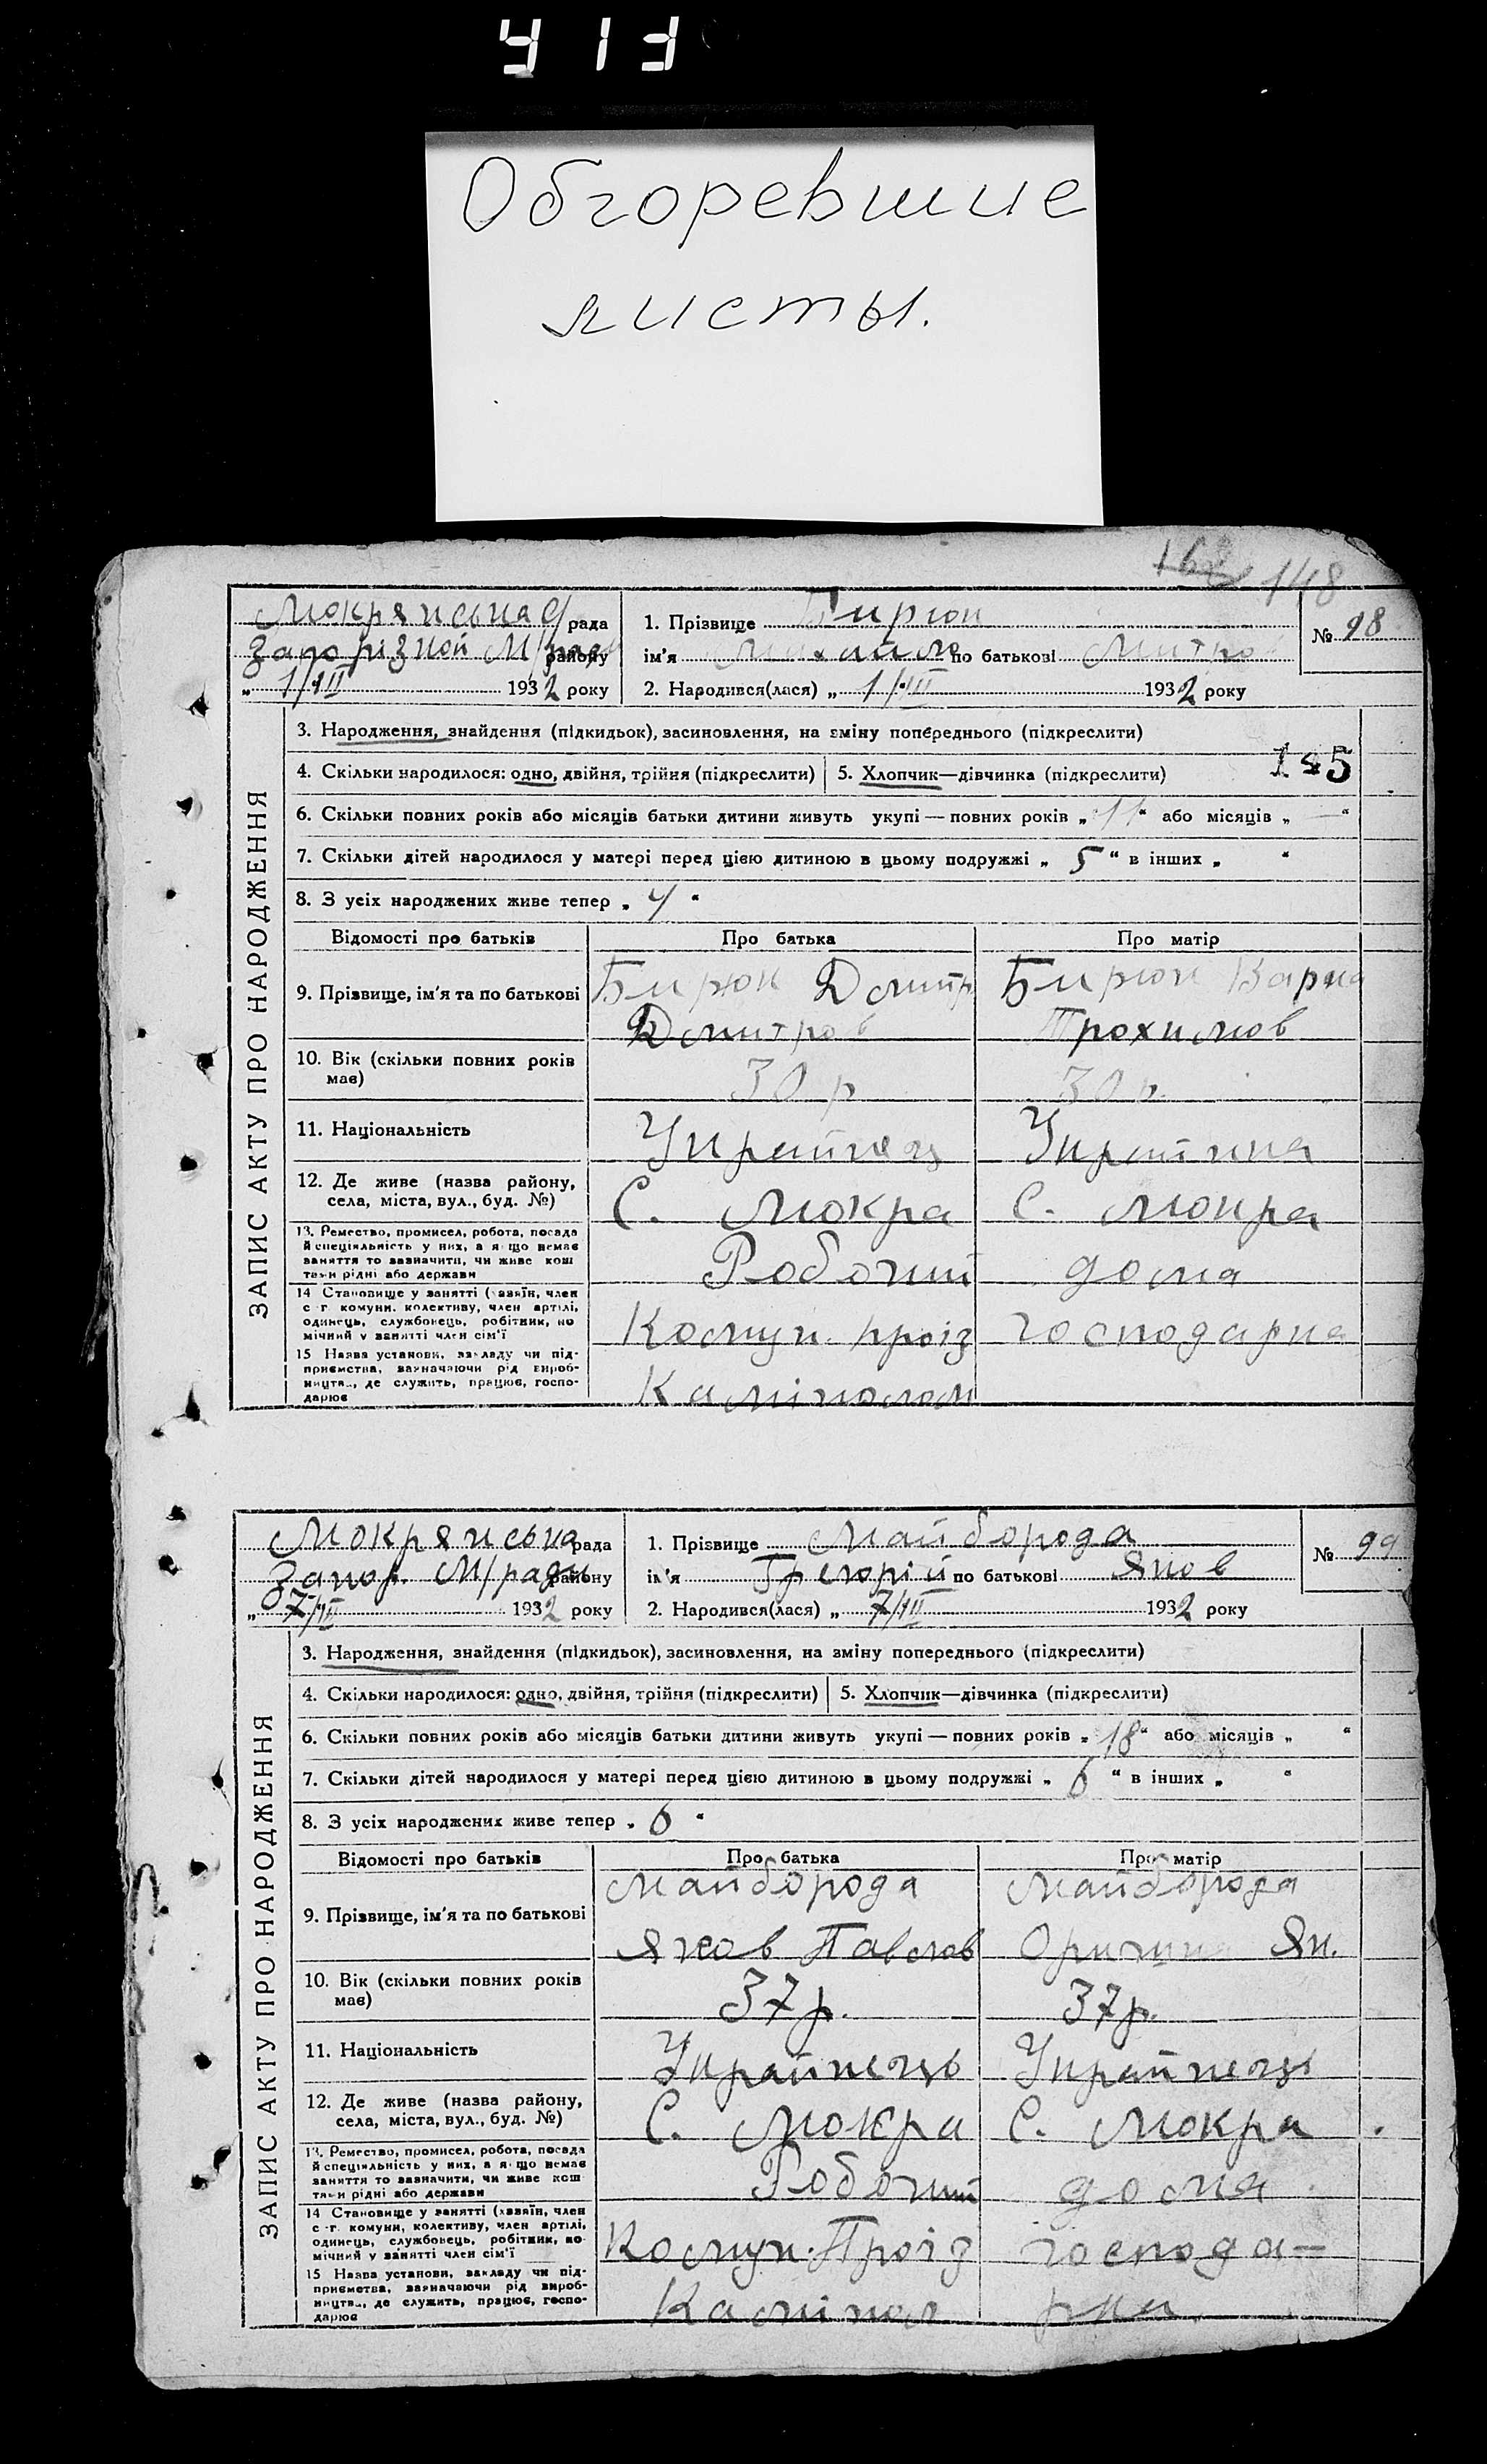 413
Обгоревшие
листы.
148
Мокрянська рада
1. Прізвище Бирюк
№ 98
Запорізкой М/ради району
ім'я Михайло по батькові Митро
„ 1/III 1932 року
2. Народився(лася) „ 1/III 1932 року
ЗАПИС АКТУ ПРО НАРОДЖЕННЯ
3. Народження, знайдення (підкидьок), засиновлення, на зміну попереднього (підкреслити)
4. Скільки народилося: одно, двійня, трійня (підкреслити)
5. Хлопчик—дівчинка (підкреслити)
6. Скільки повних років або місяців батьки дитини живуть укупі — повних років „ 11 “ або місяців „ — “
7. Скільки дітей народилося у матері перед цією дитиною в цьому подружжі „ 5 “ в інших „ “
8. З усіх народжених живе тепер „ 4 “
Відомості про батьків
Про батька
Про матір
9. Прізвище, ім'я та по батькові
Бирюк Дмитр
Дмитров
Бирюк Варка
Трохимов
10. Вік (скільки повних років
має)
30 р
30 р.
11. Національність
Українец
Украінка
12. Де живе (назва району,
села, міста, вул., буд. №)
С. Мокра
С. Мокра
13. Ремество, промисел, робота, посада
й спеціяльність у них, а якщо немає
заняття то зазначити, чи живе кош
тами рідні або держави
Робочий
дома
14 Становище у занятті (хазяїн, член
с-г. комуни, колективу, член артілі,
одинець, службовець, робітник, по
мічний у занятті член сім'ї
Комун. проіз
господарка
15 Назва установи, закладу чи під-
приємства, зазначаючи рід вироб-
ництва, де служить, працює, госпо-
дарює
Камінолом
Мокрянська рада
1. Прізвище Майборода
№ 99
Запор. М/ради району
ім'я Грегорій по батькові Яков
„ 7/III 1932 року
2. Народився(лася) „ 7/III 1932 року
ЗАПИС АКТУ ПРО НАРОДЖЕННЯ
3. Народження, знайдення (підкидьок), засиновлення, на зміну попереднього (підкреслити)
4. Скільки народилося: одно, двійня, трійня (підкреслити)
5. Хлопчик—дівчинка (підкреслити)
6. Скільки повних років або місяців батьки дитини живуть укупі — повних років „ 18 “ або місяців „ “
7. Скільки дітей народилося у матері перед цією дитиною в цьому подружжі „ 6 “ в інших „ “
8. З усіх народжених живе тепер „ 6 “
Відомості про батьків
Про батька
Про матір
9. Прізвище, ім'я та по батькові
Майборода
Яков Павлов
Майборода
Як.
10. Вік (скільки повних років
має)
37 р.
37 р.
11. Національність
Українець
Українець
12. Де живе (назва району,
села, міста, вул., буд. №)
С. Мокра
С. Мокра
13. Ремество, промисел, робота, посада
й спеціяльність у них, а якщо немає
заняття то зазначити, чи живе кош
тами рідні або держави
Робочий
дома
14 Становище у занятті (хазяїн, член
с-г. комуни, колективу, член артілі,
одинець, службовець, робітник, по-
мічний у занятті член сім'ї
Комун. Проіз
господа-
15 Назва установи, закладу чи під-
приємства, зазначаючи рід вироб-
ництва, де служить, працює, госпо-
дарює
Камінол
рка